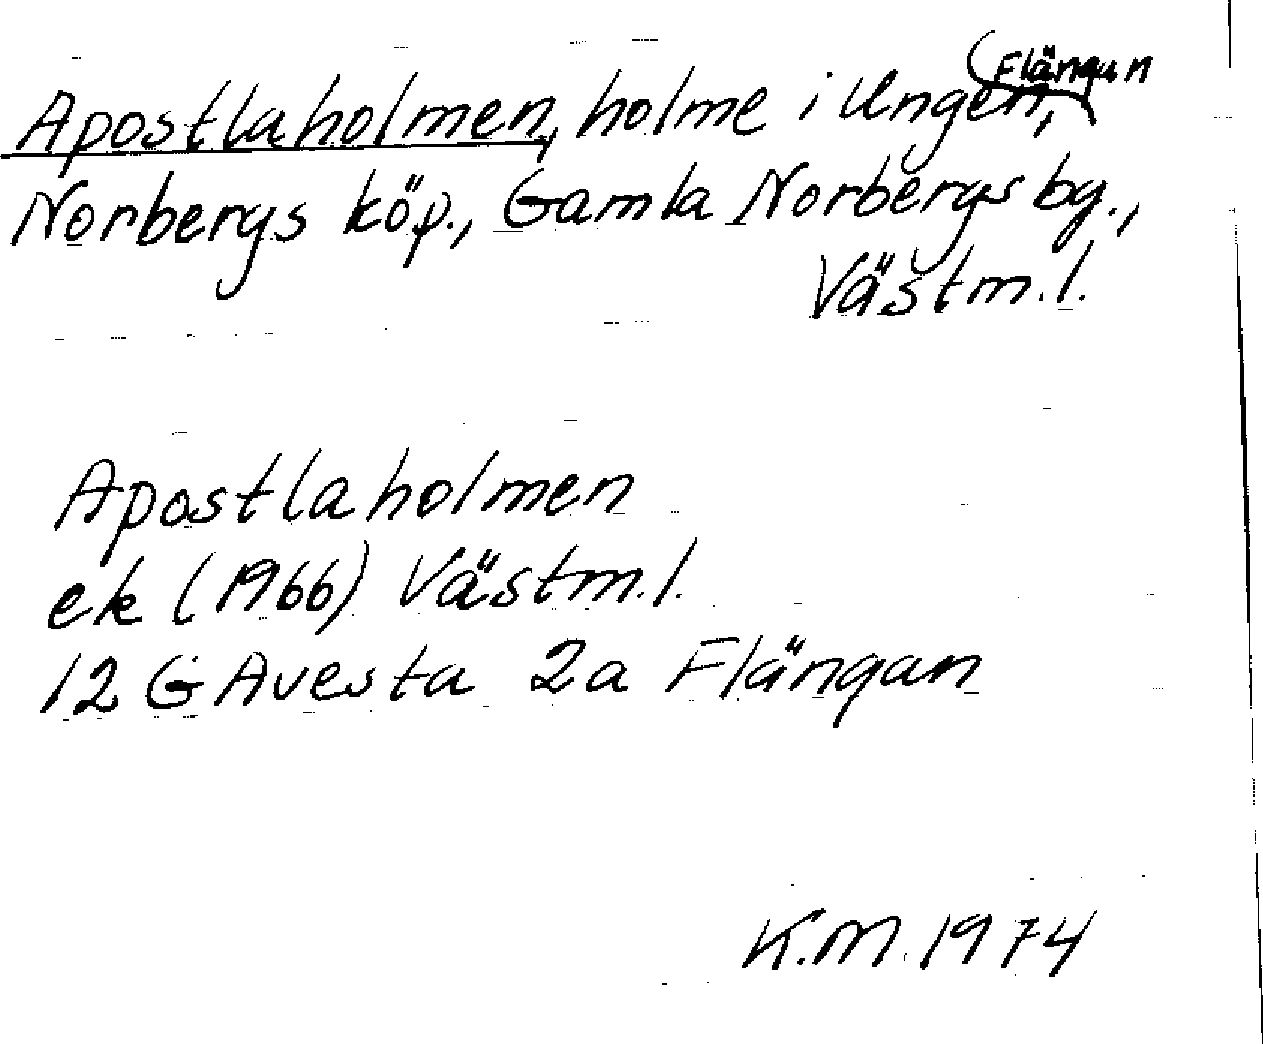 Apostlaholmen, holme i Ungen, Flängan
Norbergs köp., Gamla Norbergs bg.,
Västm. l.
Apostlaholmen
ek (1966) Västm. l.
12 G Avesta 2a Flängan
K.M. 1974